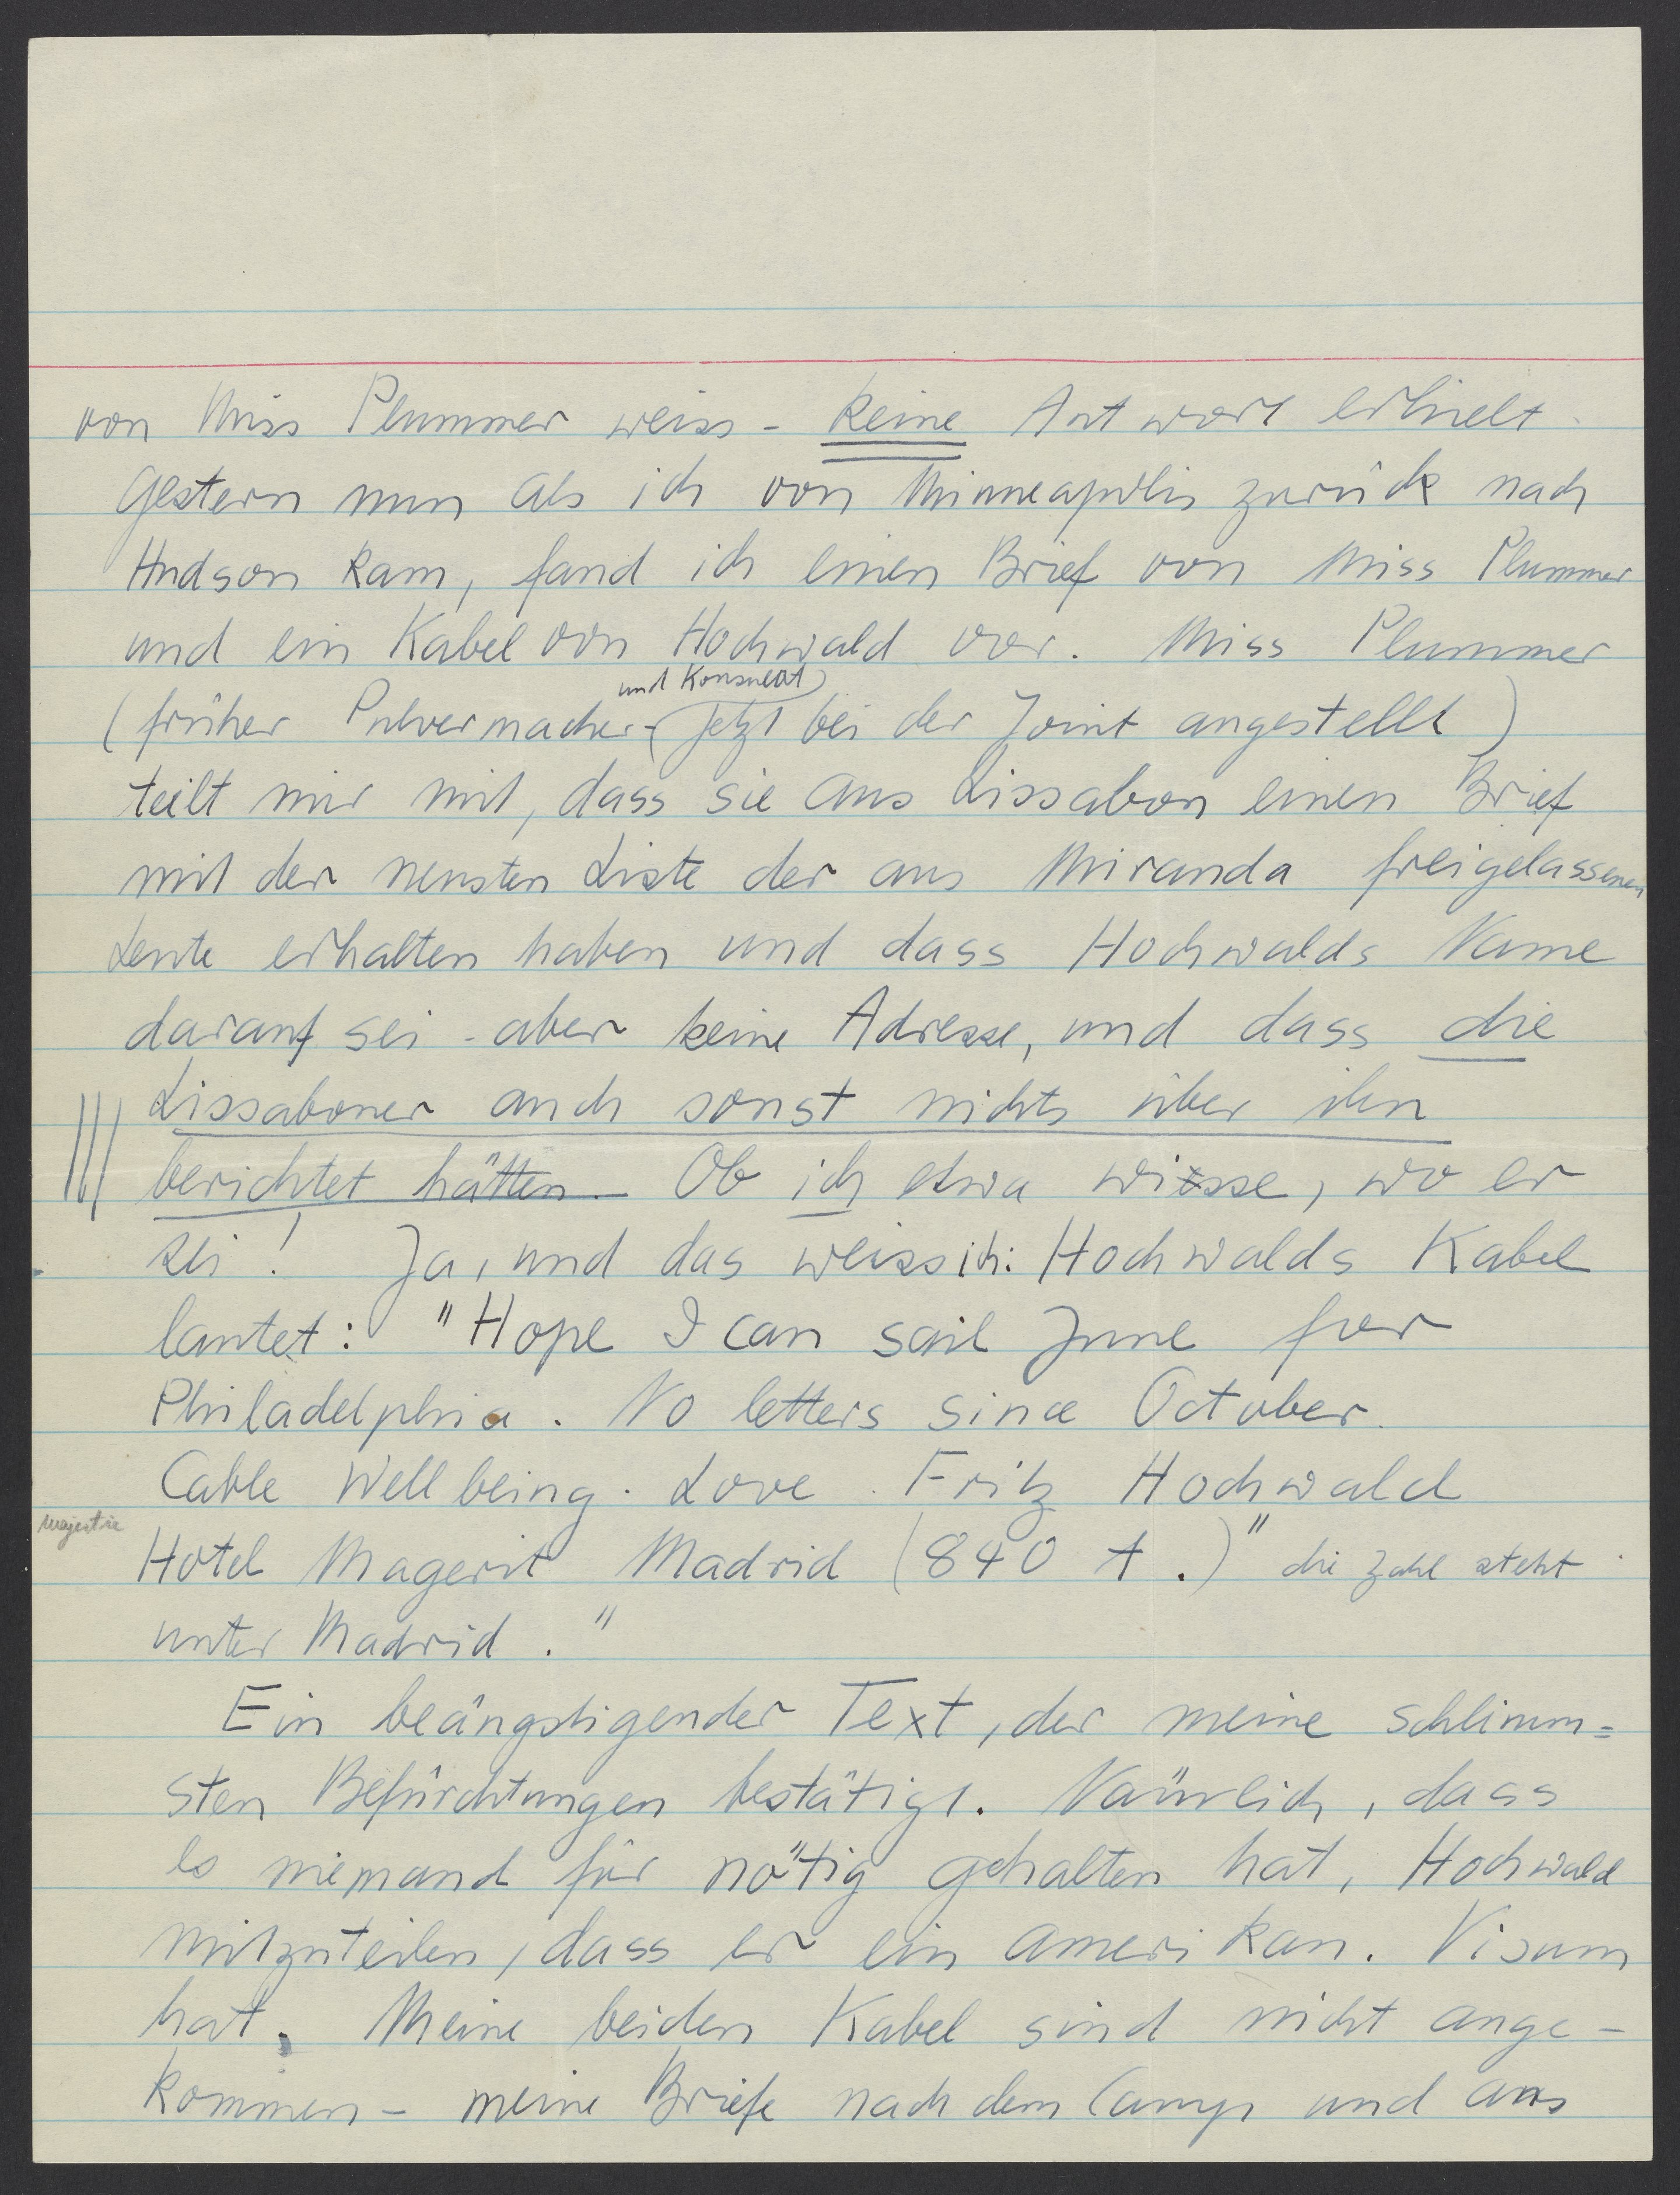 von Miss Plummer weiss - keine Antwort erhielt.
Gestern nun als ich von Minneapolis zurück nach
Hudson kam, fand ich einen Brief von Miss Plummer
und ein Kabel von Hochwald vor. Miss Plummer
und Konsulat
(früher Pulvermacher - jetzt bei der Joint angestellt)
teilt mir mit, dass sie aus Lissabon einen Brief
mit der neusten Liste der aus Miranda freigelassenen
Leute erhalten haben und dass Hochwalds Name
darauf sei - aber keine Adresse, und dass die
Lissaboner auch sonst nichts über ihn
berichtet hätten. Ob ich etwa wisse, wo er
sei! Ja, und das weiss ich: Hochwalds Kabel
lautet: "Hope I can sail June for
Philadelphia. No letters since October.
Cable Well being. Love. Fritz Hochwald
Majestic
Hotel Magerit Madrid (840 t.)" die Zahl steht
unter Madrid."
Ein beängstigender Text, der meine schlimm=
sten Befürchtungen bestätigt. Nämlich, dass
es niemand für nötig gehalten hat, Hochwald
mitzuteilen, dass er ein amerikan. Visum
hat. Meine beiden Kabel sind nicht ange-
kommen - meine Briefe nach dem Camp und ans